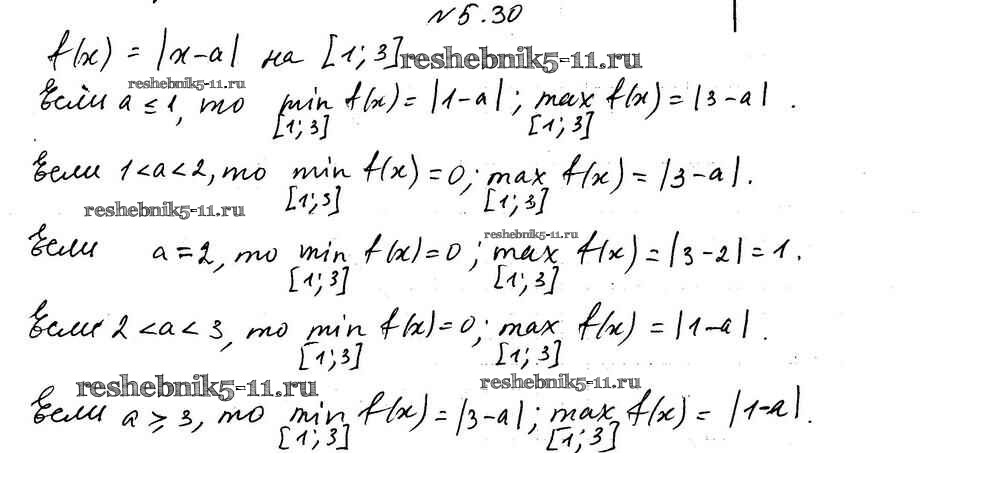 № 5.30
f(x) = |x-a| на [1; 3] reshebnik5-11.ru
reshebnik5-11.ru
Если a ≤ 1, то min f(x) = |1-a|; max f(x) = |3-a|.
[1; 3] [1; 3]
Если 1 < a < 2, то min f(x) = 0; max f(x) = |3-a|.
[1; 3] [1; 3]
reshebnik5-11.ru
reshebnik5-11.ru
Если a = 2, то min f(x) = 0; max f(x) = |3-2| = 1.
[1; 3] [1; 3]
Если 2 < a < 3, то min f(x) = 0; max f(x) = |1-a|.
[1; 3] [1; 3]
reshebnik5-11.ru reshebnik5-11.ru
Если a ≥ 3, то min f(x) = |3-a|; max f(x) = |1-a|.
[1; 3] [1; 3]